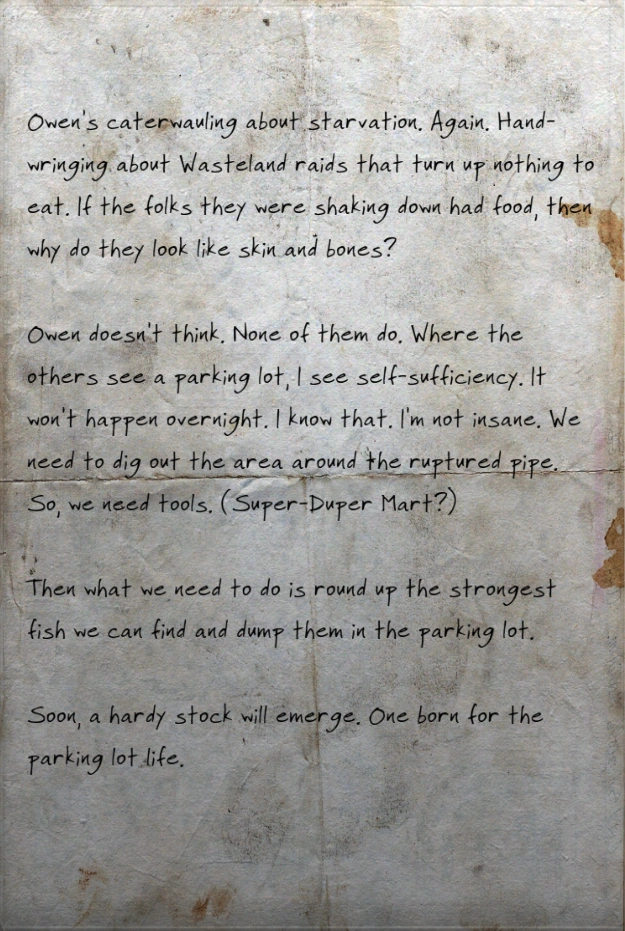 Owen's caterwauling about starvation. Again. Hand-
wringing about Wasteland raids that turn up nothing to
eat. If the folks they were shaking down had food, then
why do they look like skin and bones?
Owen doesn't think. None of them do. Where the
others see a parking lot, I see self-sufficiency. It
won't happen overnight. I know that. I'm not insane. We
need to dig out the area around the ruptured pipe.
So, we need tools. (Super-Duper Mart?)
Then what we need to do is round up the strongest
fish we can find and dump them in the parking lot.
Soon, a hardy stock will emerge. One born for the
parking lot life.